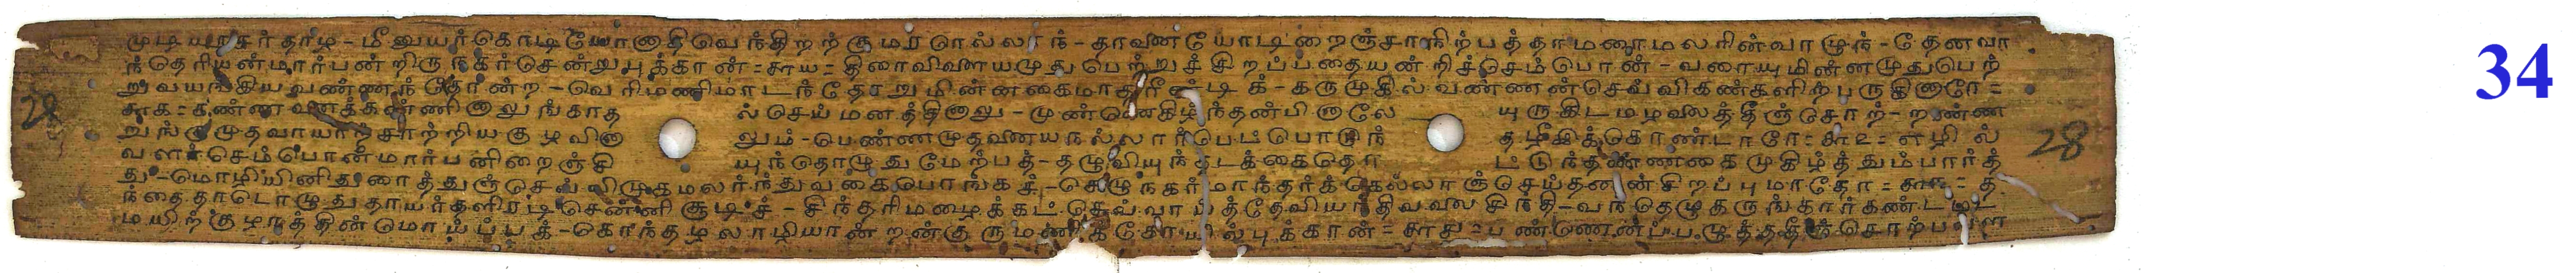 34
28
28
முடியரசர் தாழ - மீனுயர்கொடியோனாதிவெந்திறற்குமரரெல்லாந் - தாவணையோடிறைஞ்சாநிற்பத்தாமரைமலரின்வாழுந் - தேனவா
ந்தெரியன்மார்பன்றிருநகர்சென்றுபுக்கான் = = திரைவிளையமுதுபெற்றுச்சிறப்பதையன்றிச்செம்பொன் - வரையுமின்னமுதுபெற்
றுவயங்கியவண்ணந்தோன்ற - வெரிமணிமாடந்தோறுமின்னகைமாதரீண்டிக் - கருமுகில்வண்ணன்செவ்விகண்களிற்பருகினாரே =
கண்ணினாலுங்காத ல்செய்மனத்தினாலு - முண்ணெகிழ்ந்தன்பினாலே யுருகிடமழலைத்தீஞ்சொற் - றண்ண
றுங்குமுதவாயாற்சாற்றியகுழவினா லும் - பெண்ணமுதனையநல்லார்பெட்பொடுந் தழீஇக்கொண்டாரே = எழில்
வளர்செம்பொன்மார்பனிறைஞ்சி யுந்தொழுதுமேற்பத் - தழுவியுந்தடக்கைதொ ட்டுந்தண்ணகைமுகிழ்த்தும்பார்த்
து - மொழியினிதுரைத்துஞ்செவ்விமுகமலர்ந்துவகைபொங்கச் - செழுநகர்மாந்தர்க்கெல்லாஞ்செய்தனன்சிறப்புமாதோ = = த
ந்தைதாடொழுதுதாயர்தளிரடிசென்னிசூடிச் - சிந்தரிமழைக்கட்செவ்வாய்த்தேவியர்திவலைசிந்தி - வந்தெழுதருங்கார்கண்ட
மயிற்குழாத்தின்மொய்ப்பக் - கொந்தழலாழியான்றன்குருமணிக்கோயில்புக்கான் = பண்ணென்ப்பழுத்ததீஞ்சொற்பவள